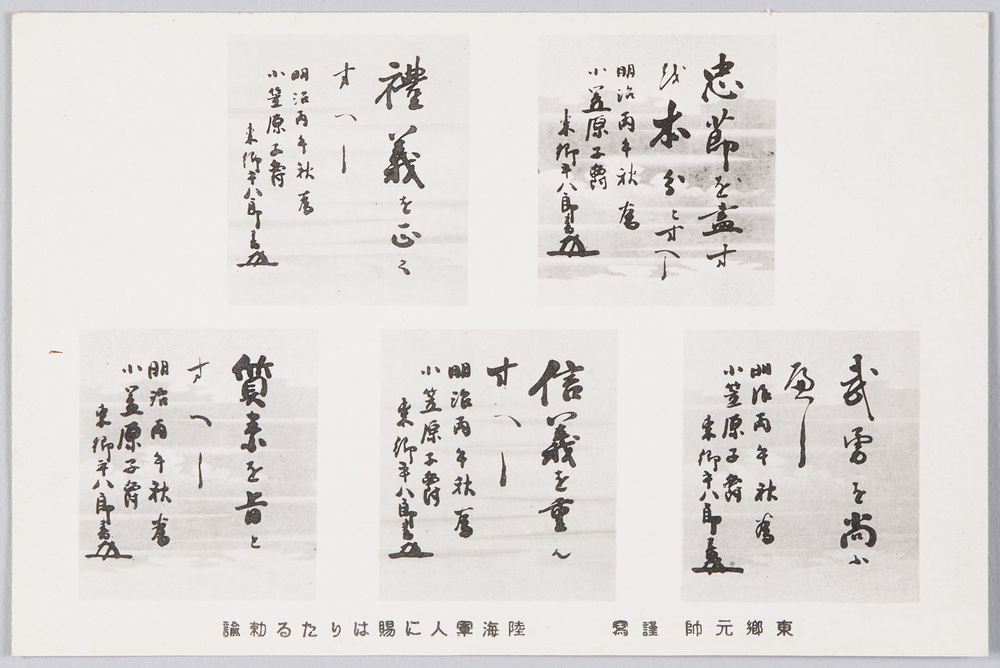 忠節を盡す
を本分とすへし
明治丙午秋為
小笠原子爵
東郷平八郎書
禮義を正く
すへし
明治丙午秋為
小笠原子爵
東郷平八郎書
武勇を尚ふ
へし
明治丙午秋為
小笠原子爵
東郷平八郎書
信義を重ん
すへし
明治丙午秋為
小笠原子爵
東郷平八郎書
質素を旨と
すへし
明治丙午秋為
小笠原子爵
東郷平八郎書
東鄉元帥 謹寫 陸海軍人に賜はりたる勅諭